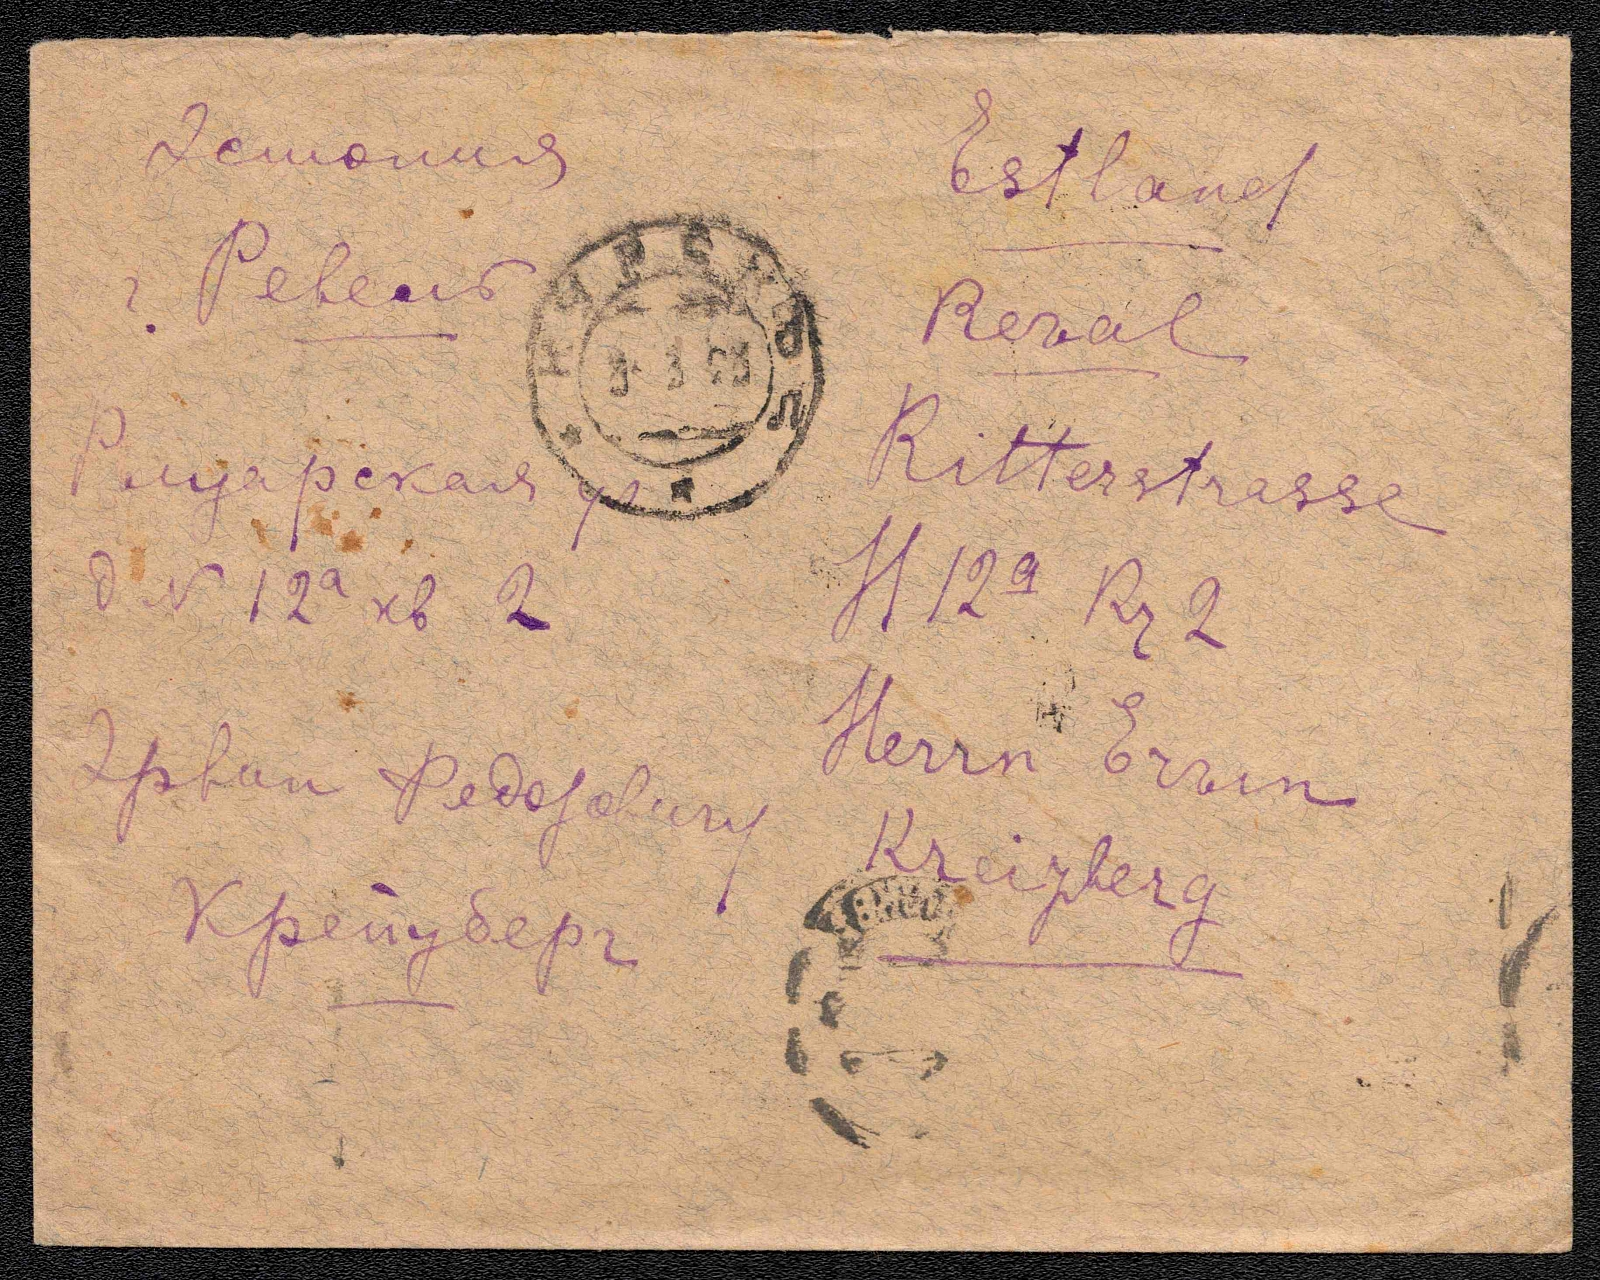 Эстония
г. Ревель
Рыцарская ул
д N 12а кв 2
Эрвин Федоровичу
Крейцберг
Estland
Reval
Ritterstrasse
H 12a Kv 2
Herrn Ervin
Kreizberg